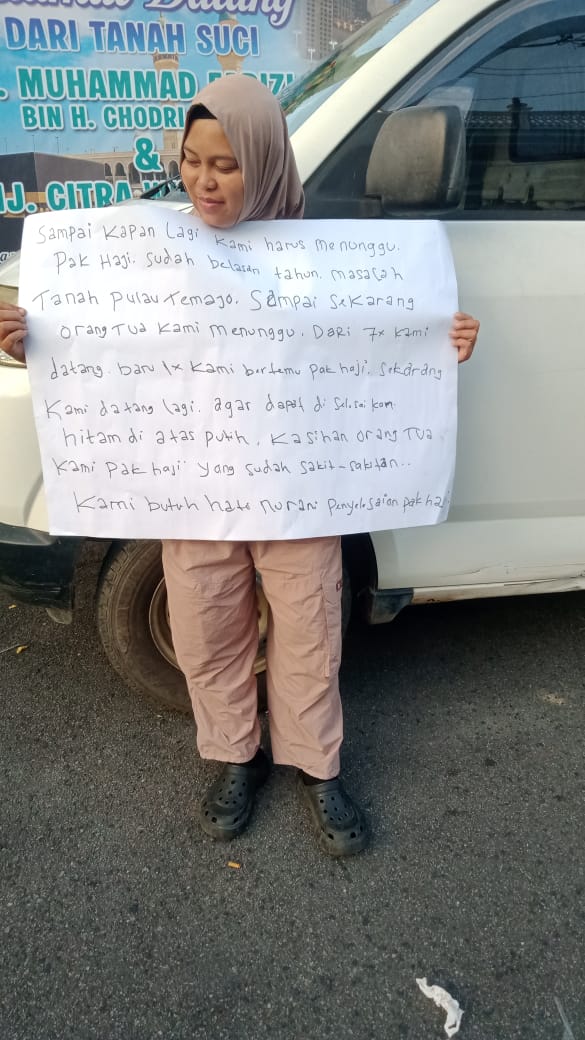 Selamat Datang
DARI TANAH SUCI
. MUHAMMAD
BIN H. CHODRI
&
J. CITRA
Sampai Kapan Lagi Kami harus menunggu.
Pak Haji. Sudah belasan tahun. masalah
Tanah Pulau Temajo. Sampai Sekarang
orang Tua Kami menunggu. Dari 7x Kami
datang. baru 1x Kami bertemu pak haji. Sekarang
Kami datang lagi. agar dapat di Selesai kan
hitam di atas putih. Kasihan orang Tua
Kami pak haji yang sudah sakit-sakitan..
Kami butuh hati nurani Penyelesaian pak haji